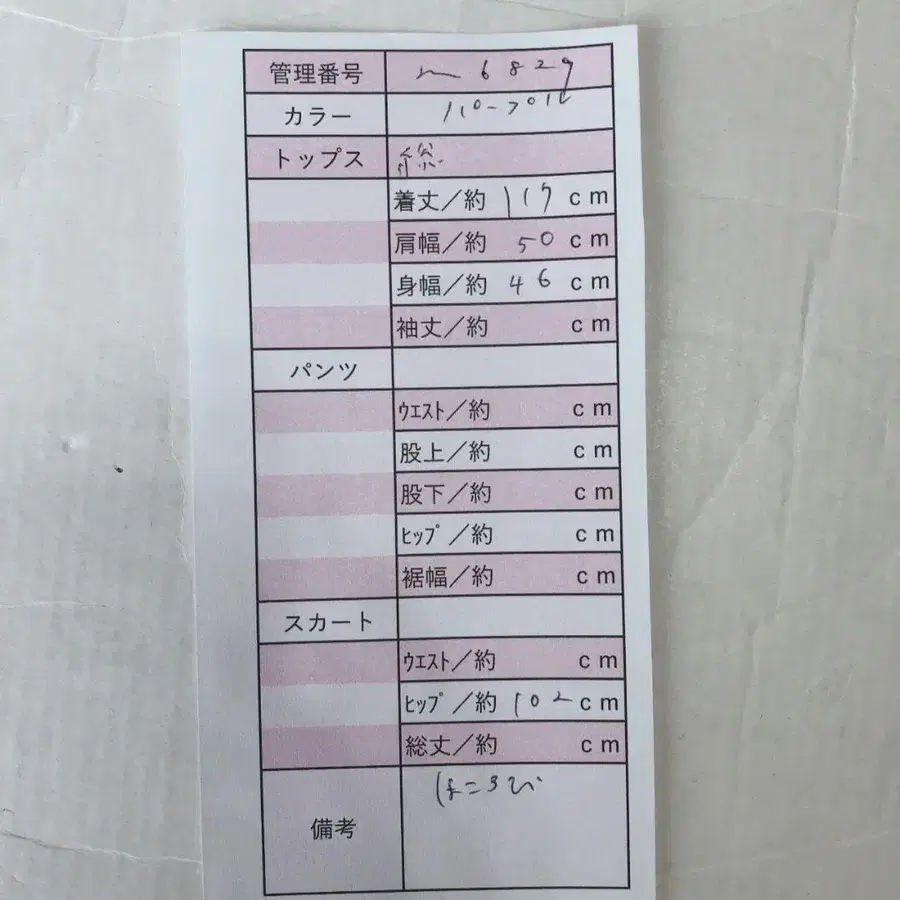 管理番号 m6829
カラー パープル
トップス 総
着丈／約 117 cm
肩幅／約 50 cm
身幅／約 46 cm
袖丈／約 cm
パンツ
ｳｴｽﾄ／約 cm
股上／約 cm
股下／約 cm
ﾋｯﾌﾟ／約 cm
裾幅／約 cm
スカート
ｳｴｽﾄ／約 cm
ﾋｯﾌﾟ／約 102 cm
総丈／約 cm
備考 ほころび